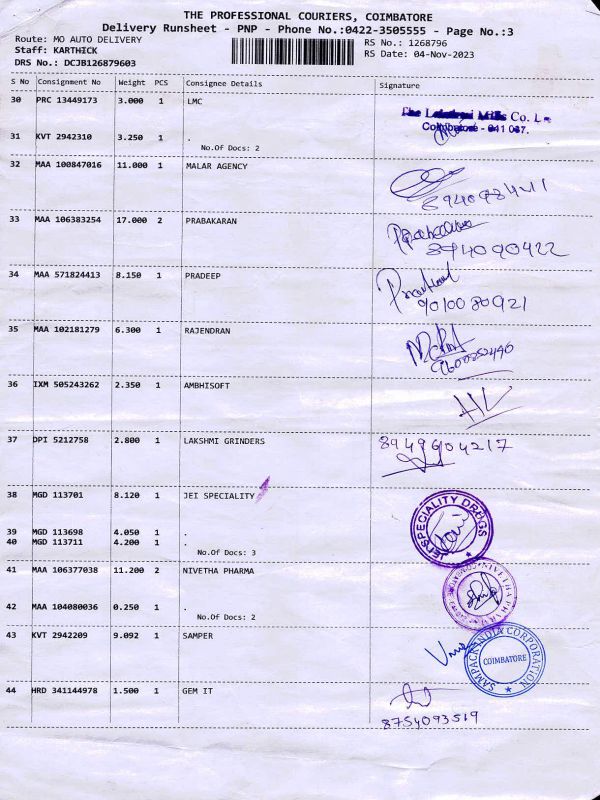 THE PROFESSIONAL COURIERS, COIMBATORE
Delivery Runsheet - PNP - Phone No.:0422-3505555 - Page No.:3
Route: MO AUTO DELIVERY
RS No.: 1268796
Staff: KARTHICK
RS Date: 04-Nov-2023
DRS No.: DCJB126879603
S No Consignment No Weight PCS Consignee Details Signature
30 PRC 13449173 3.000 1 LMC
The Lakshmi Mills Co. L
Coimbatore - 641 037.
31 KVT 2942310 3.250 1 .
No.Of Docs: 2
32 MAA 100847016 11.000 1 MALAR AGENCY
33 MAA 106383254 17.000 2 PRABAKARAN
Prabakaran
8940 90422
34 MAA 571824413 8.150 1 PRADEEP
9010080921
35 MAA 102181279 6.300 1 RAJENDRAN
36 IXM 505243262 2.350 1 AMBHISOFT
37 DPI 5212758 2.800 1 LAKSHMI GRINDERS
8949604217
38 MGD 113701 8.120 1 JEI SPECIALITY
JEI SPECIALITY DRUGS
39 MGD 113698 4.050 1 .
40 MGD 113711 4.200 1 .
No.Of Docs: 3
41 MAA 106377038 11.200 2 NIVETHA PHARMA
NIVETHA PHARMA
42 MAA 104080036 0.250 1 .
No.Of Docs: 2
43 KVT 2942209 9.092 1 SAMPER
SAMPACK INDIA CORPORATION
COIMBATORE
44 HRD 341144978 1.500 1 GEM IT
8754093519